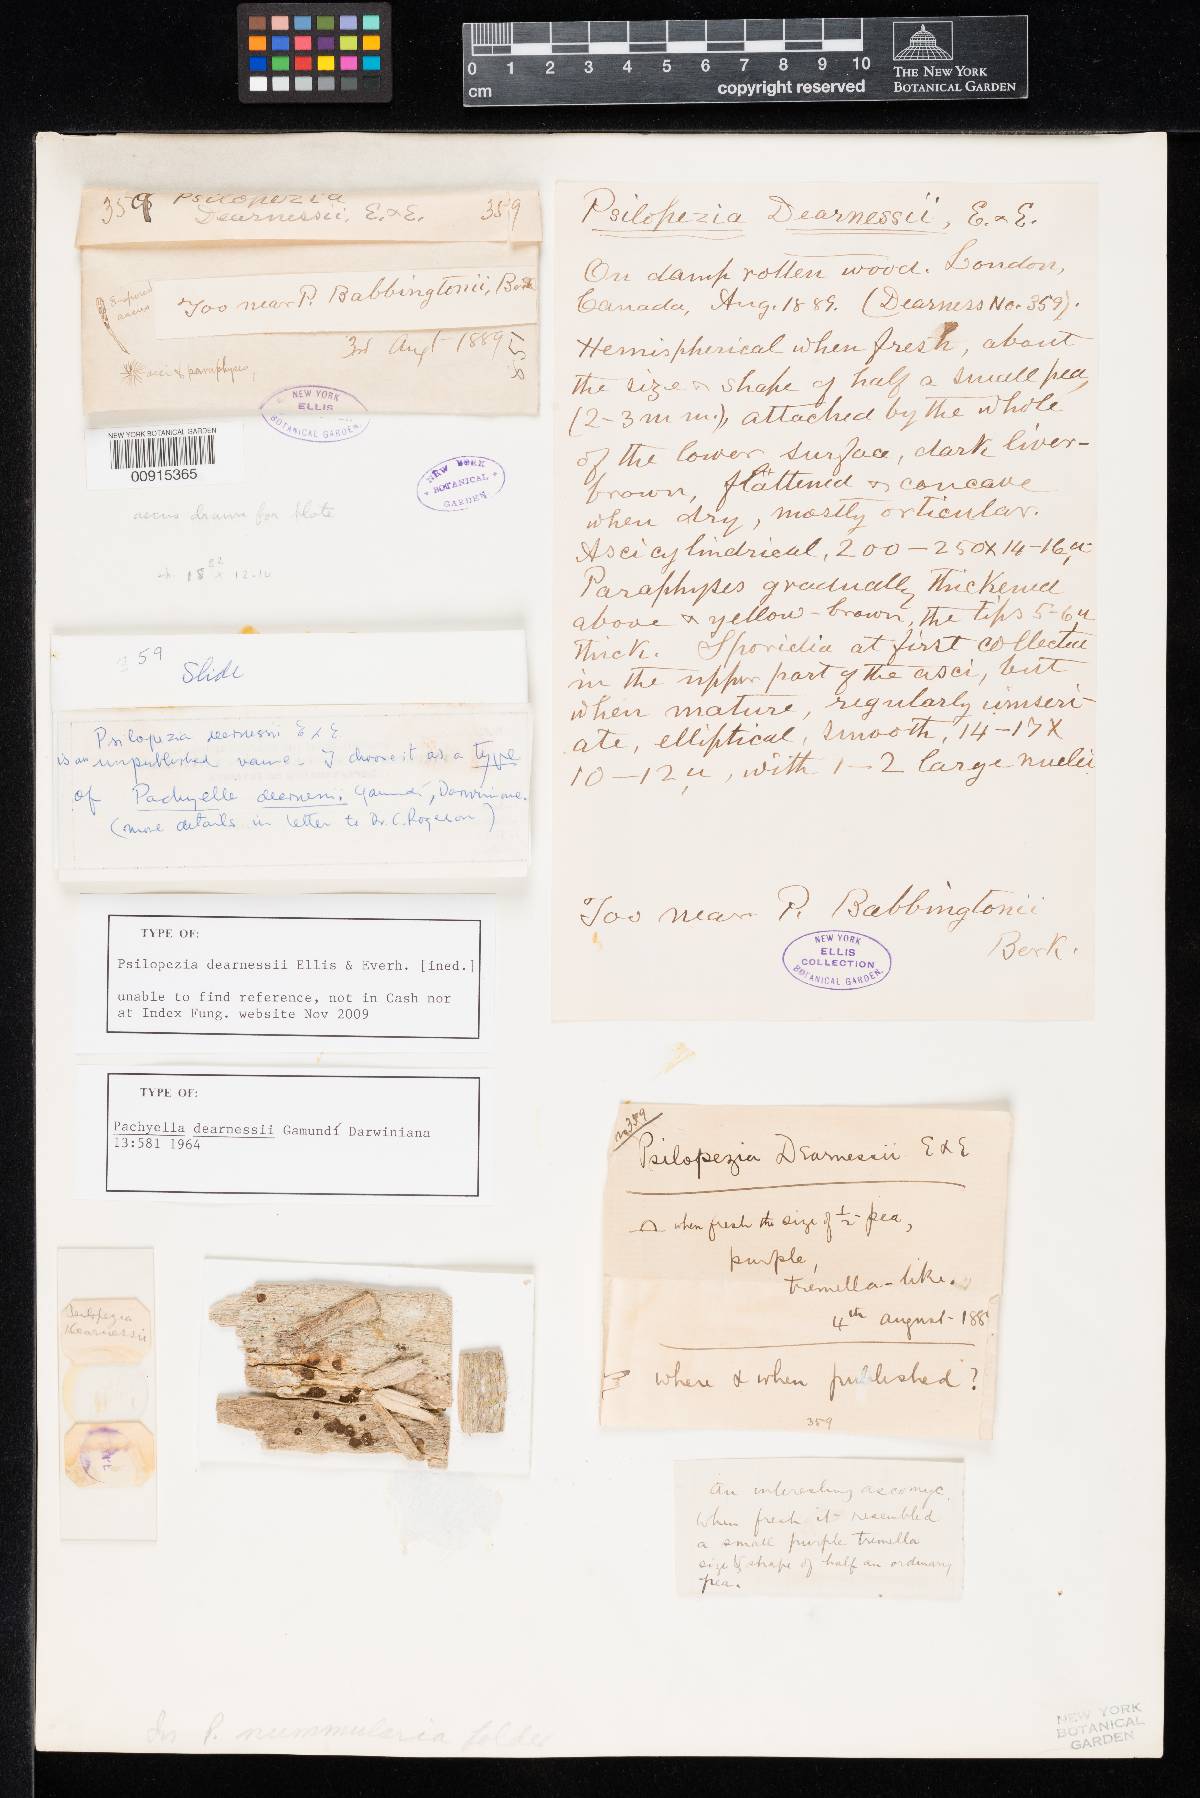 0 1 2 3 4 5 6 7 8 9 10
cm
copyright reserved
THE NEW YORK
BOTANICAL GARDEN
359 Psilopezia 359
Dearnessii, E. & E.
8-spored
ascus
Too near P. Babbingtonii, Berk
3rd Augt 1889
359
asci & paraphyses,
NEW YORK
ELLIS
BOTANICAL GARDEN.
NEW YORK BOTANICAL GARDEN
00915365
NEW YORK
BOTANICAL
GARDEN
ascus drawn for plate
359
Slide
Psilopezia dearnessii E & E
is an unpublished name. I choose it as a type
of Pachyella dearnessii Gamundí, Darwiniana.
(more details in letter to Dr. C. Rogerson)
TYPE OF:
Psilopezia dearnessii Ellis & Everh. [ined.]
unable to find reference, not in Cash nor
at Index Fung. website Nov 2009
TYPE OF:
Pachyella dearnessii Gamundí Darwiniana
13:581 1964
Psilopezia
Dearnessii
Psilopezia Dearnessii, E. & E.
On damp rotten wood. London,
Canada, Aug. 1889. (Dearness No. 359).
Hemispherical when fresh, about
the size & shape of half a small pea,
(2-3 m m.), attached by the whole
of the lower surface, dark liver-
brown, flattened & concave
when dry, mostly orbicular.
Asci cylindrical, 200-250 x 14-16 µ
Paraphyses gradually thickened
above & yellow-brown, the tips 5-6 µ
thick. Sporidia at first collected
in the upper part of the asci, but
when mature, regularly uniseri-
ate, elliptical, smooth, 14-17 X
10-12 µ, with 1-2 large nuclei
Too near P. Babbingtonii
Berk.
NEW YORK
ELLIS
COLLECTION
BOTANICAL GARDEN.
no 359
Psilopezia Dearnessii E & E
when fresh the size of ½ pea,
purple,
tremella-like.
4th august 188
where & when published?
359
An interesting ascomyc.
When fresh it resembled
a small purple tremella
size & shape of half an ordinary
pea.
In P. nummularia folder
NEW YORK
BOTANICAL
GARDEN